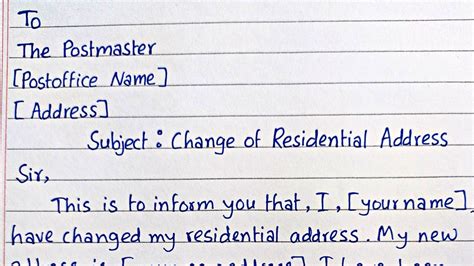 To
The Postmaster
[Postoffice Name]
[Address]
Subject : Change of Residential Address
Sir,
This is to inform you that, I, [your name]
have changed my residential address. My new